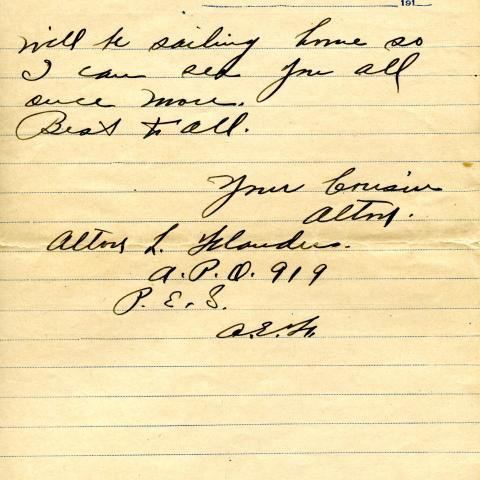 191
will be sailing home so
I can see you all
once more.
Best to all.
Your Cousin
Alton.
Alton L. Flanders.
A.P.O. 919
P.E.S.
A.E.F.